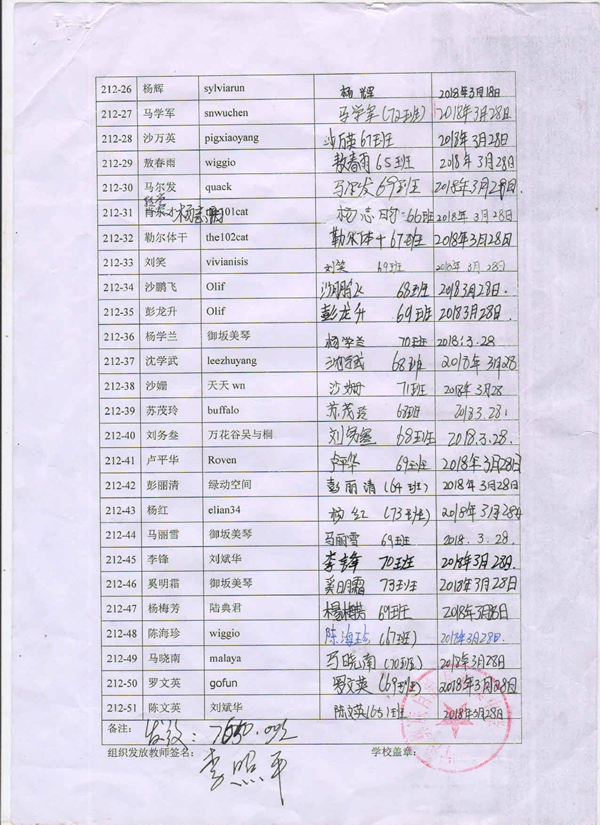 212-26 杨辉 sylviarun 杨辉 2018年3月18日
212-27 马学军 snwuchen 马学军(72班) 2018年3月28日
212-28 沙万英 pigxiaoyang 沙万英67班 2018年3月28日
212-29 敖春雨 wiggio 敖春雨65班 2018年3月28日
212-30 马尔发 quack 马尔发69班 2018年3月28日
212-31 杨志明 the101cat 杨志明 66班 2018年3月28日
212-32 勒尔体干 the102cat 勒尔体干67班 2018年3月28日
212-33 刘笑 vivianisis 刘笑 69班 2018年3月28日
212-34 沙鹏飞 Olif 沙鹏飞 68班 2018年3月28日.
212-35 彭龙升 Olif 彭龙升 69班 2018年3月28日.
212-36 杨学兰 御坂美琴 杨学兰 70班 2018.3.28
212-37 沈学武 leezhuyang 沈学武 68班 2018年3月28
212-38 沙姗 天天 wn 沙姗 71班 2018年3月28
212-39 苏茂玲 buffalo 苏茂玲 68班 2018.3.28
212-40 刘务叁 万花谷吴与桐 刘务叁 68班 2018.3.28.
212-41 卢平华 Roven 卢平华 69班 2018年3月28日
212-42 彭丽清 绿动空间 彭丽清(64班) 2018年3月28日
212-43 杨红 elian34 杨红(73班) 2018年3月28日
212-44 马丽雪 御坂美琴 马丽雪 69班 2018.3.28.
212-45 李锋 刘斌华 李锋 70班 2018年3月28日.
212-46 奚明霜 御坂美琴 奚明霜 73班 2018年3月28日
212-47 杨梅芳 陆典君 杨梅芳 69班 2018年3月28日
212-48 陈海珍 wiggio 陈海珍(67班) 2018年3月28日.
212-49 马晓南 malaya 马晓南(70班) 2018年3月28日
212-50 罗文英 gofun 罗文英(69班) 2018年3月28日
212-51 陈文英 刘斌华 陈文英(65班) 2018年3月28日
备注:
组织发放教师签名: 李照平 学校盖章: